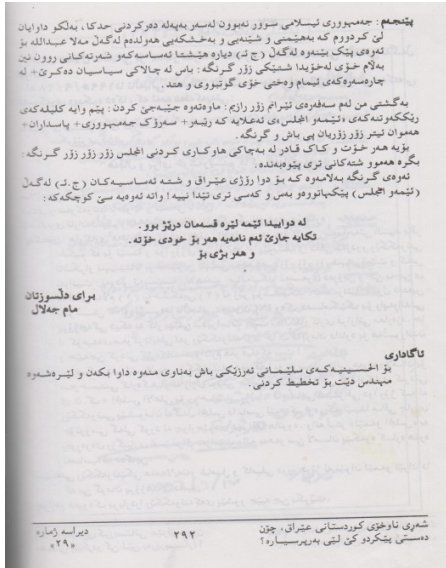 پێنجەم : جەمهووری ئیسلامی سوور نەبوون لەسەر بەپەلە دەرکردنی حدکا، بەڵکو داوایان
لێ کردوورم کە بەهێمنی و شێنەیی و بەخشکەیی هەوڵدەم لەگەڵ مەلا عبدالله بۆ
ئەوەی پێک بێنەوە لەگەڵ (ج ئـ) دیارە هێشتا ئەساسەکەو شەرتەکانی روون نین
بەلام خۆی لەخۆیدا شتێکی زۆر گرنگە : باس لە چالاکی سیاسیان دەکرێ+ لە
چارەسەرەکەی ئیمام وەختی خۆی گوتبووی و هتد .
بەگشتی من لەم سەفەرەی ئێرانم زۆر رازیم : ماوەتەوە جێبەجێ کردن : پێم وایە کلیلەکەی
رێککەوتنەکەی «ئیمەو المجلس»ی ئەعلایە کە رێبەر+ سەرۆک جەمهووری+ پاسداران+
هەموان ئیتر زۆر زۆریان پێ باش و گرنگە .
بۆیە هەر خۆت و کاک قادر لە بەچاکی هاوکاری کردنی المجلس زۆر زۆر زۆر گرنگە :
بگرە هەموو شتەکانی تری پێوەبەندە .
ئەوەی گرنگە بەلامەوە کە بۆ دوا رۆژی عێراق و شتە ئەساسیەکان (ج.ئـ) لەگەڵ
(ئیمەو المجلس) پێکهاتووەو بەس و کەسی تری تێدا نییە ! واتە ئەوەیە سێ کوچکەکە :
لە دواییدا ئێمە لێرە قسەمان درێژ بوو .
تکایە جارێ ئەم نامەیە هەر بۆ خودی خۆتە .
و هەر بژی بۆ
برای دڵسۆزتان
مام جەلال
ئاگاداری
بۆ الحسینیەکەی سلێمانی ئەرزێکی باش بەناوی منەوە داوا بکەن و لێرەشەوە
مهیندس دێت بۆ تخطیط کردنی .
شەڕی ناوخۆی کوردستانی عێراق، چۆن
دەستی پێکردو کێ لێی بەرپرسیارە؟
٢٩٢
دیراسە ژمارە
«٢٩»